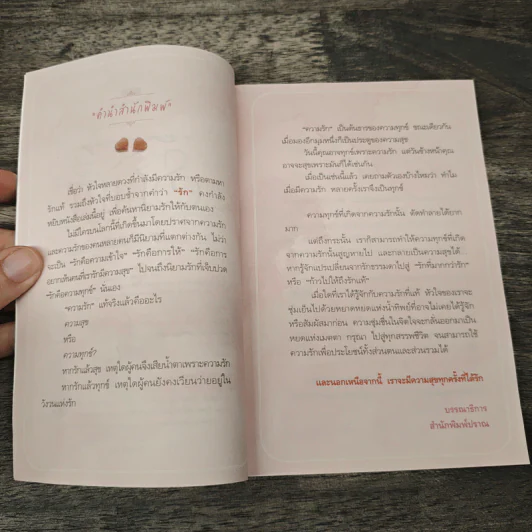 "คำนำสำนักพิมพ์"
เชื่อว่า หัวใจหลายดวงที่กำลังมีความรัก หรือตามหา
รักแท้ รวมถึงหัวใจที่บอบช้ำจากคำว่า "รัก" คงกำลัง
หยิบหนังสือเล่มนี้อยู่ เพื่อค้นหานิยามรักให้กับตนเอง
ไม่มีใครบนโลกนี้ที่เกิดขึ้นมาโดยปราศจากความรัก
และความรักของคนหลายคนก็มีนิยามที่แตกต่างกัน ไม่ว่า
จะเป็น "รักคือความเข้าใจ" "รักคือการให้" "รักคือการ
อยากเห็นคนที่เรารักมีความสุข" ไปจนถึงนิยามรักที่เจ็บปวด
"รักคือความทุกข์" นั่นเอง
"ความรัก" แท้จริงแล้วคืออะไร
ความสุข
หรือ
ความทุกข์?
หากรักแล้วสุข เหตุใดผู้คนจึงเสียน้ำตาเพราะความรัก
หากรักแล้วทุกข์ เหตุใดผู้คนยังคงเวียนว่ายอยู่ใน
วังวนแห่งรัก
"ความรัก" เป็นต้นธารของความทุกข์ ขณะเดียวกัน
เมื่อมองอีกมุมหนึ่งก็เป็นประตูของความสุข
วันนี้คุณอาจทุกข์เพราะความรัก แต่วันข้างหน้าคุณ
อาจจะสุขเพราะมันก็ได้เช่นกัน
เมื่อเป็นเช่นนี้แล้ว เคยถามตัวเองบ้างไหมว่า ทำไม
เมื่อมีความรัก หลายครั้งเราจึงเป็นทุกข์
ความทุกข์ที่เกิดจากความรักนั้น ตัดทำลายได้ยาก
มาก
แต่ถึงกระนั้น เราก็สามารถทำให้ความทุกข์ที่เกิด
จากความรักนั้นสูญหายไป และกลายเป็นความสุขได้
หากรู้จักแปรเปลี่ยนจากรักธรรมดาไปสู่ "รักที่มากกว่ารัก"
หรือ "ก้าวไปให้ถึงรักแท้"
เมื่อใดที่เราได้รู้จักกับความรักที่แท้ หัวใจของเราจะ
ชุ่มเย็นไปด้วยหยาดหยดแห่งน้ำทิพย์ที่อาจไม่เคยได้รู้จัก
หรือสัมผัสมาก่อน ความชุ่มชื่นในจิตใจจะกลั่นออกมาเป็น
หยดแห่งเมตตา กรุณา ไปสู่ทุกสรรพชีวิต จนสามารถใช้
ความรักเพื่อประโยชน์ทั้งส่วนตนและส่วนรวมได้
และนอกเหนือจากนี้ เราจะมีความสุขทุกครั้งที่ได้รัก
บรรณาธิการ
สำนักพิมพ์ปราณ